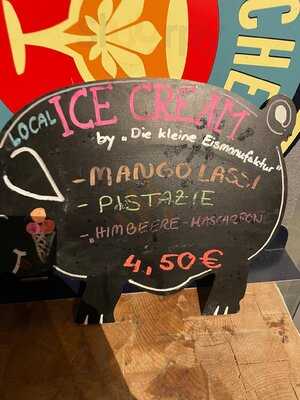 LOCAL
ICE CREAM
by „Die kleine Eismanufaktur"
- MANGO LASSI
- PISTAZIE
- „HIMBEERE - MASCARPON
4,50€